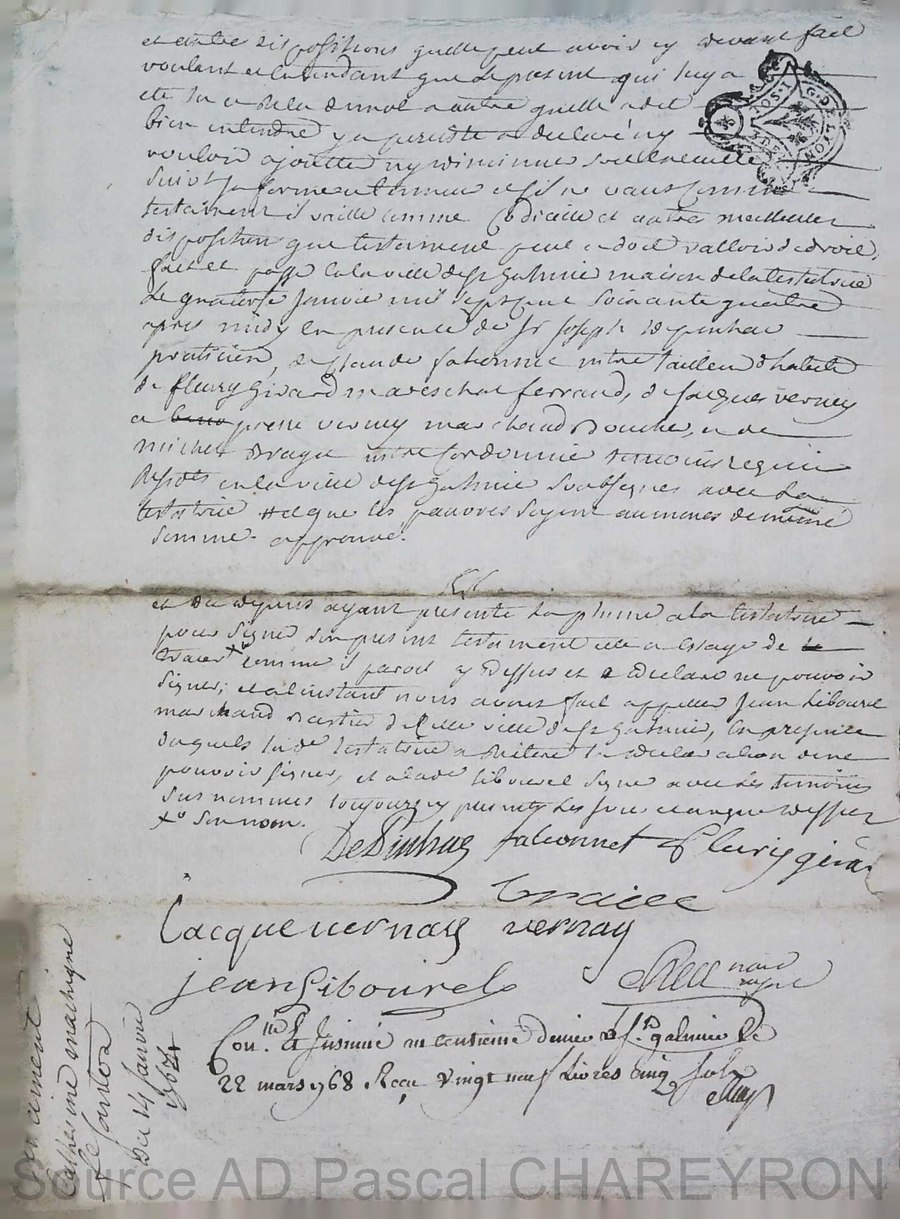 et autre dispositions quelle peut avoir cy devant fait
voulant et entendant que le present qui luy a
ete lu et relu de mot a autre quelle a dit
bien entendre y a persisté a declaré ny
vouloir ajoutter ny diminuer
suivt sa forme et teneur et sil ne vaut comme
testament il vaille comme Codicille et autre meilleure
disposition que testament peut et doit valloir de droit,
fait et passé en la ville de st galmier maison de la testatrice
Le quatorze Janvier mil sept cent soixante quatre
apres midy en presence de sr Joseph depinhac
praticien, de Claude falconnet mtre tailleur d'habits
de fleury Girard mareschal ferrand, de Jacques verney
et pierre verney marchand Boucher, et de
michel mtre Cordonnier temoins requis
en la ville de st galmier soubsignes avec La
testatrice et que les pauvres soyent aumones de même
somme. approuvé.
et du depuis ayant presenté la plume a la testatrice
pour signer son present testament elle a essayé de
tracer x comme il paroit cy dessus et a declaré ne pouvoir
signer, et a l'instant nous avons fait appeller Jean Libourel
marchand de cette ville de st galmier, en presence
duquel lade testatrice a reitéré la declaration de ne
pouvoir signer, et a led Libourel signé avec les temoins
sus nommes toujours cy presents les jour et an que dessus
xo son nom.
DePinhac falconnet fleury girard
Jacque vernay vernay
jean Libourel
Con.lé & Insinué au Centieme denier a St galmier Le
22 mars 1768 Reçu vingt neuf livres cinq sols
Catherine
Du 14 Janvier
1764
G. DE LYON
Source AD Pascal CHAREYRON